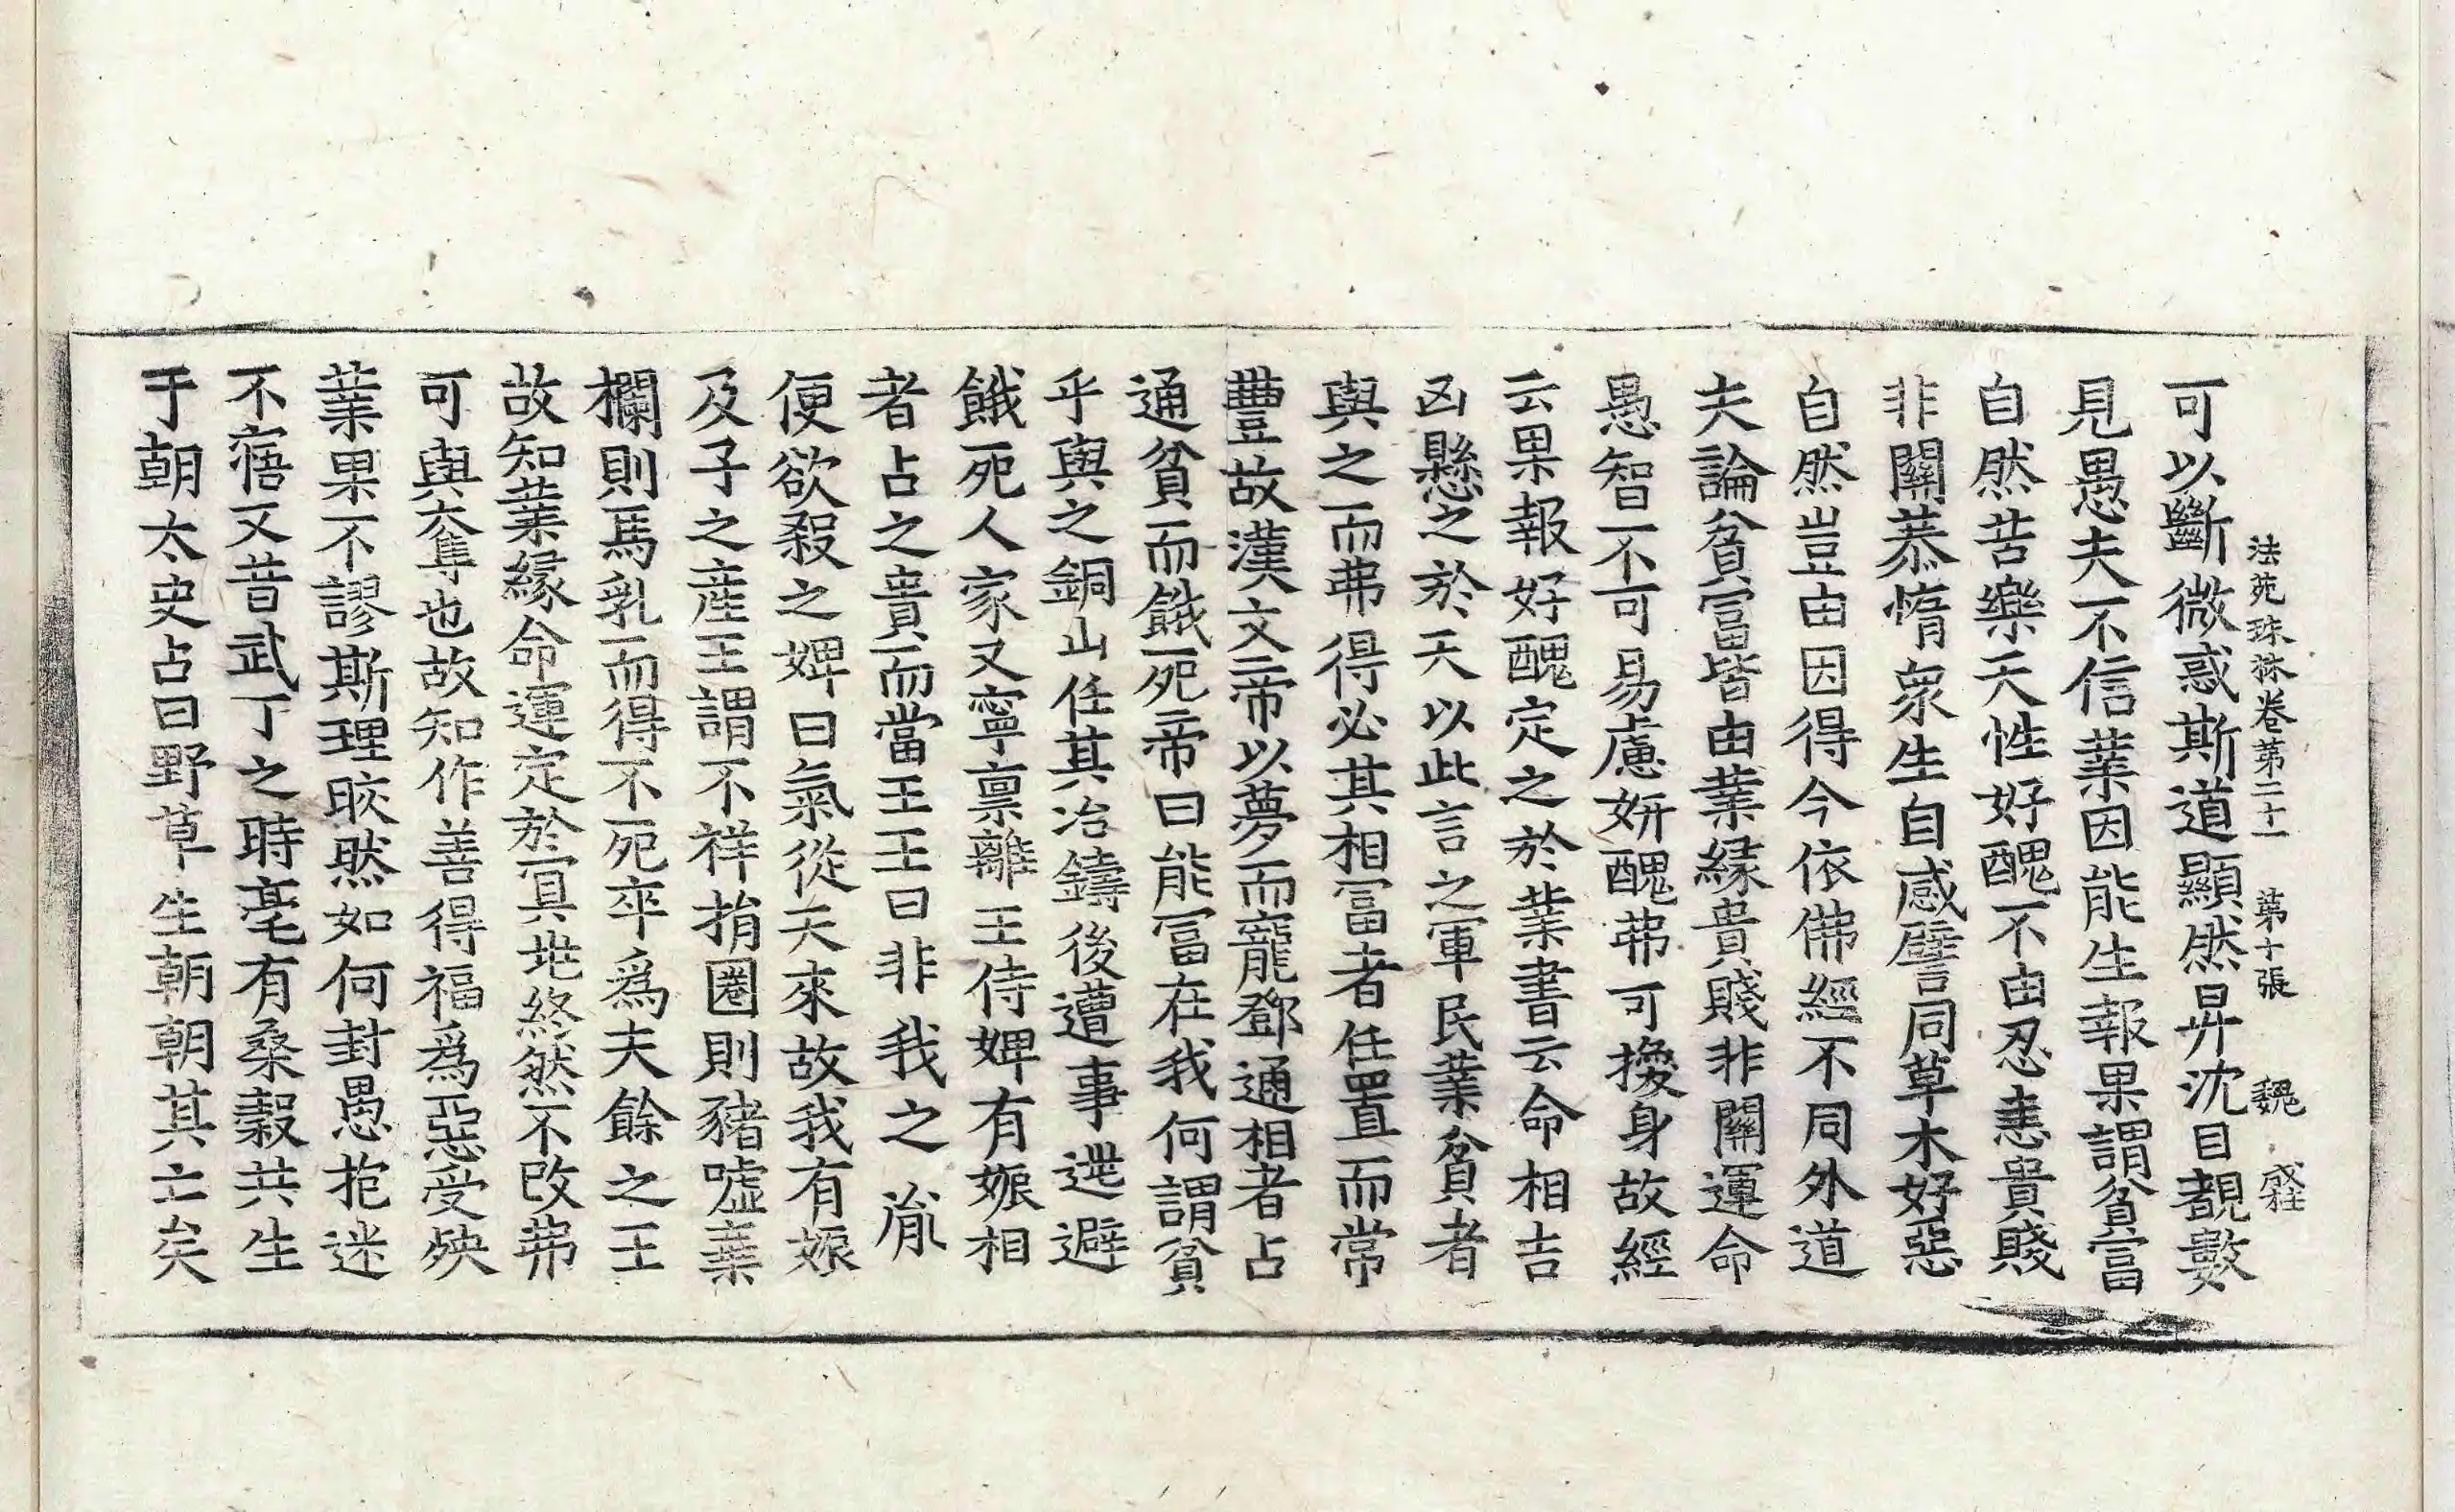 法苑珠林卷第二十一 第十張 魏 盛
可以斷微惑斯道顯然昇沈目覩數
見愚夫不信業因能生報果謂貧富
自然苦樂天性好醜不由忍恚貴賤
非關恭惰衆生自感譬同草木好惡
自然豈由因得今依佛經不同外道
夫論貧富皆由業緣貴賤非關運命
愚智不可易慮姸醜弗可換身故經
云果報好醜定之於業書云命相吉
凶懸之於天以此言之軍民業貧者
與之而弗得必其相冨者任置而常
豐故漢文帝以夢而寵鄧通相者占
通貧而餓死帝曰能冨在我何謂貧
乎與之銅山任其冶鑄後遭事逃避
餓死人家又寧禀離王侍婢有娠相
者占之貴而當王王曰非我之胤
便欲殺之婢曰氣從天來故我有娠
及子之産王謂不祥捐圈則豬噓棄
欄則馬乳而得不死卒爲夫餘之王
故知業緣命運定於冥兆終然不改弗
可與奪也故知作善得福爲惡受殃
業果不謬斯理皎然如何封愚抱迷
不寤又昔武丁之時亳有桑榖共生
于朝太史占曰野草生朝朝其亡矣